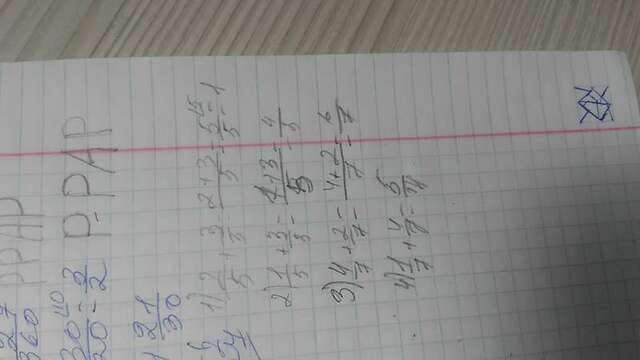 27/360 PPAP
30/20 = 3/2 P-PAP
21/30
1) 2/5 + 3/5 = 2+3/5 = 5/5 = 1
2) 1/5 + 3/5 = 1+3/5 = 4/5
3) 4/7 + 2/7 = 4+2/7 = 6/7
4) 1/7 + 4/7 = 5/14